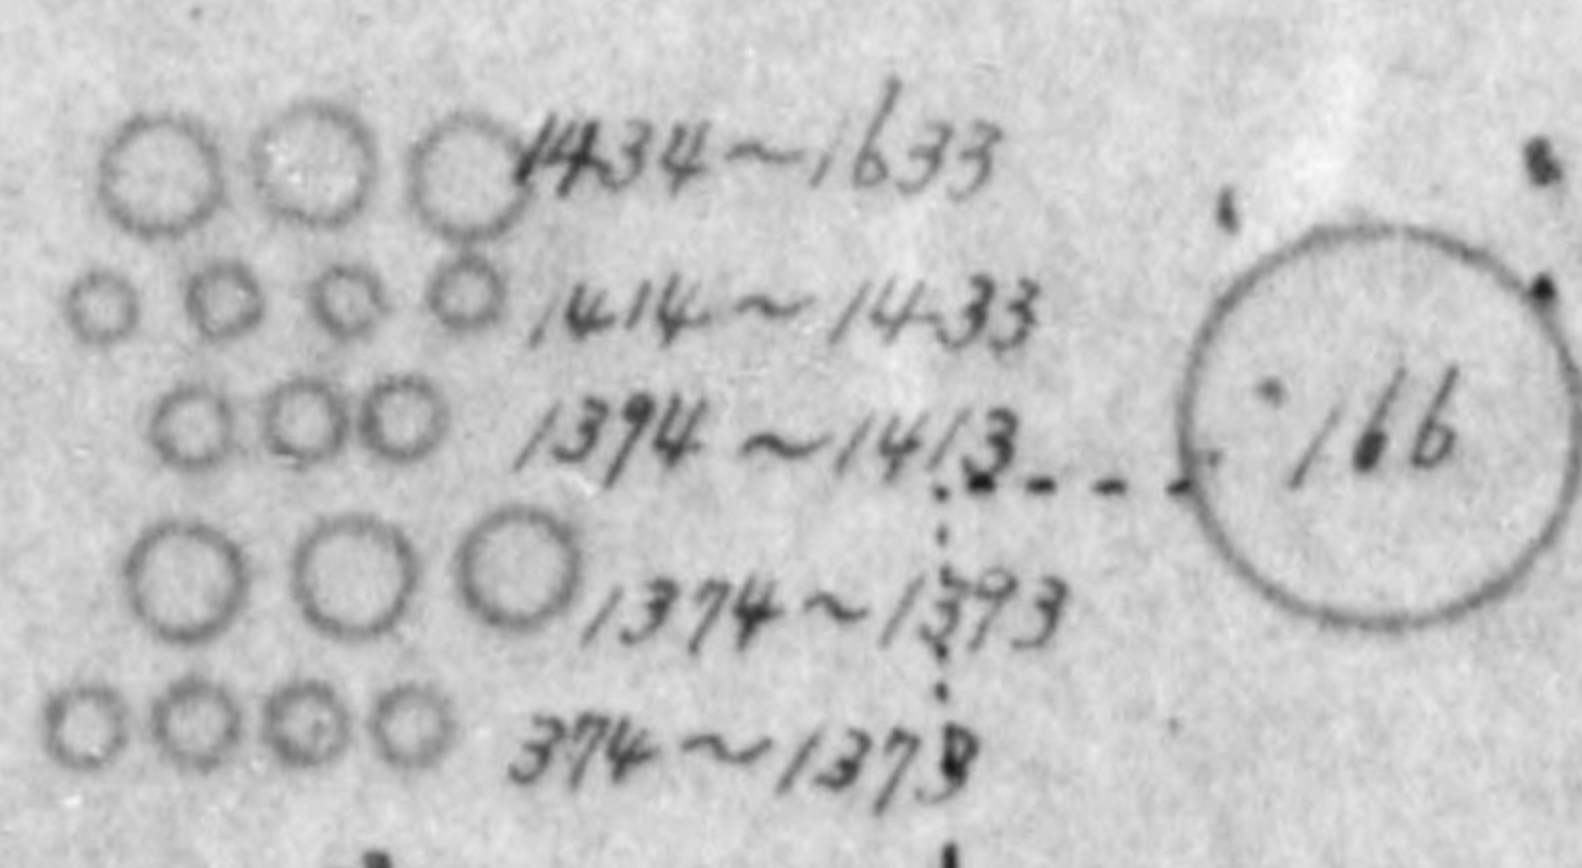 1434~1633
1414~1433
1394~1413
166
1374~1393
374~1373